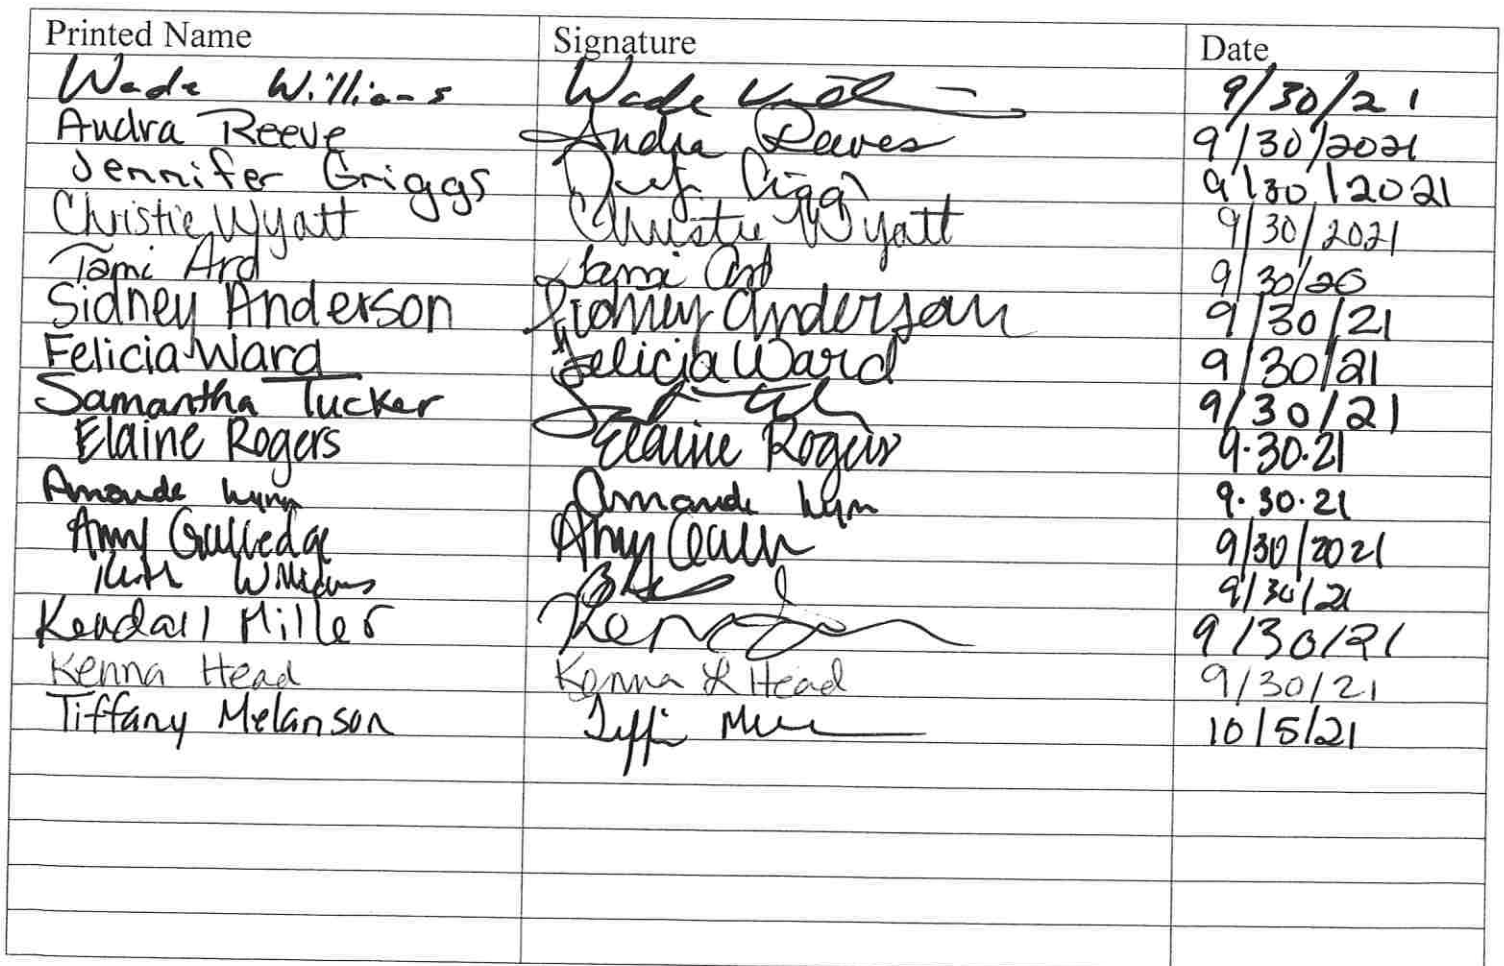 Printed Name Signature Date
Wade Williams Wade 9/30/21
Audra Reeve Audra Reeves 9/30/2021
Jennifer Griggs Griggs 9/30/2021
Christie Wyatt Christie Wyatt 9/30/2021
Tami Ard Tami Ard 9/30/20
Sidney Anderson Sidney Anderson 9/30/21
Felicia Ward Felicia Ward 9/30/21
Samantha Tucker 9/30/21
Elaine Rogers Elaine Rogers 9.30.21
Amanda Lynn Amanda Lynn 9.30.21
Amy Gulledge Amy 9/30/2021
Keith Williams 9/30/21
Kendall Miller 9/30/21
Kenna Head Kenna L Head 9/30/21
Tiffany Melanson 10/5/21